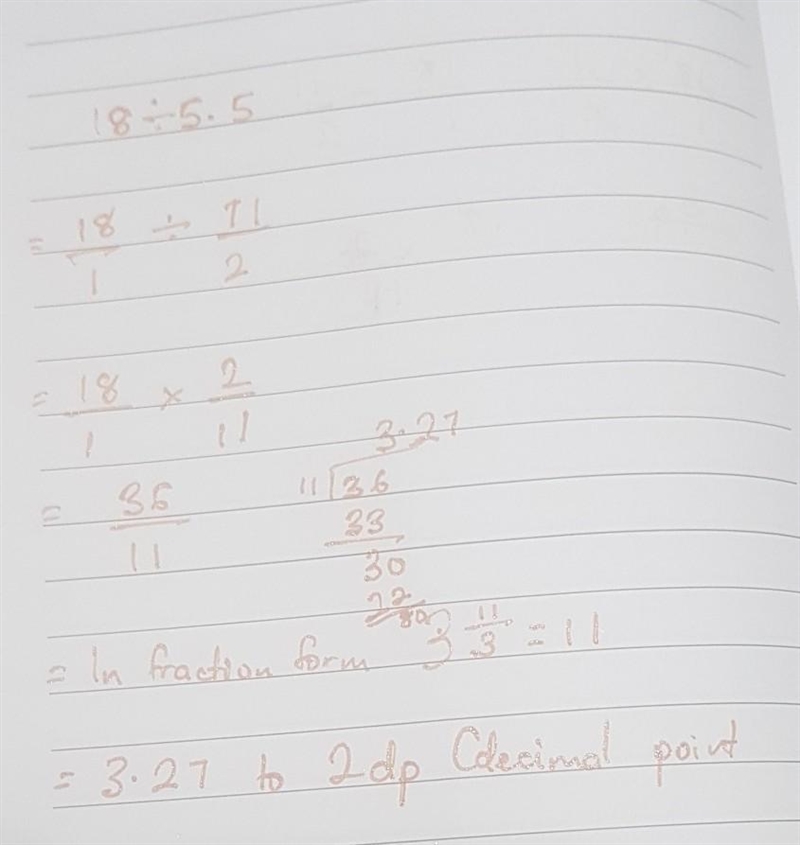 18÷5.5
= 18/1 ÷ 11/2
= 18/1 × 2/11
3.27
= 36/11   11√36
33
30
22
80
= In fraction form 3 11/3 = 11
= 3.27 to 2dp (decimal point